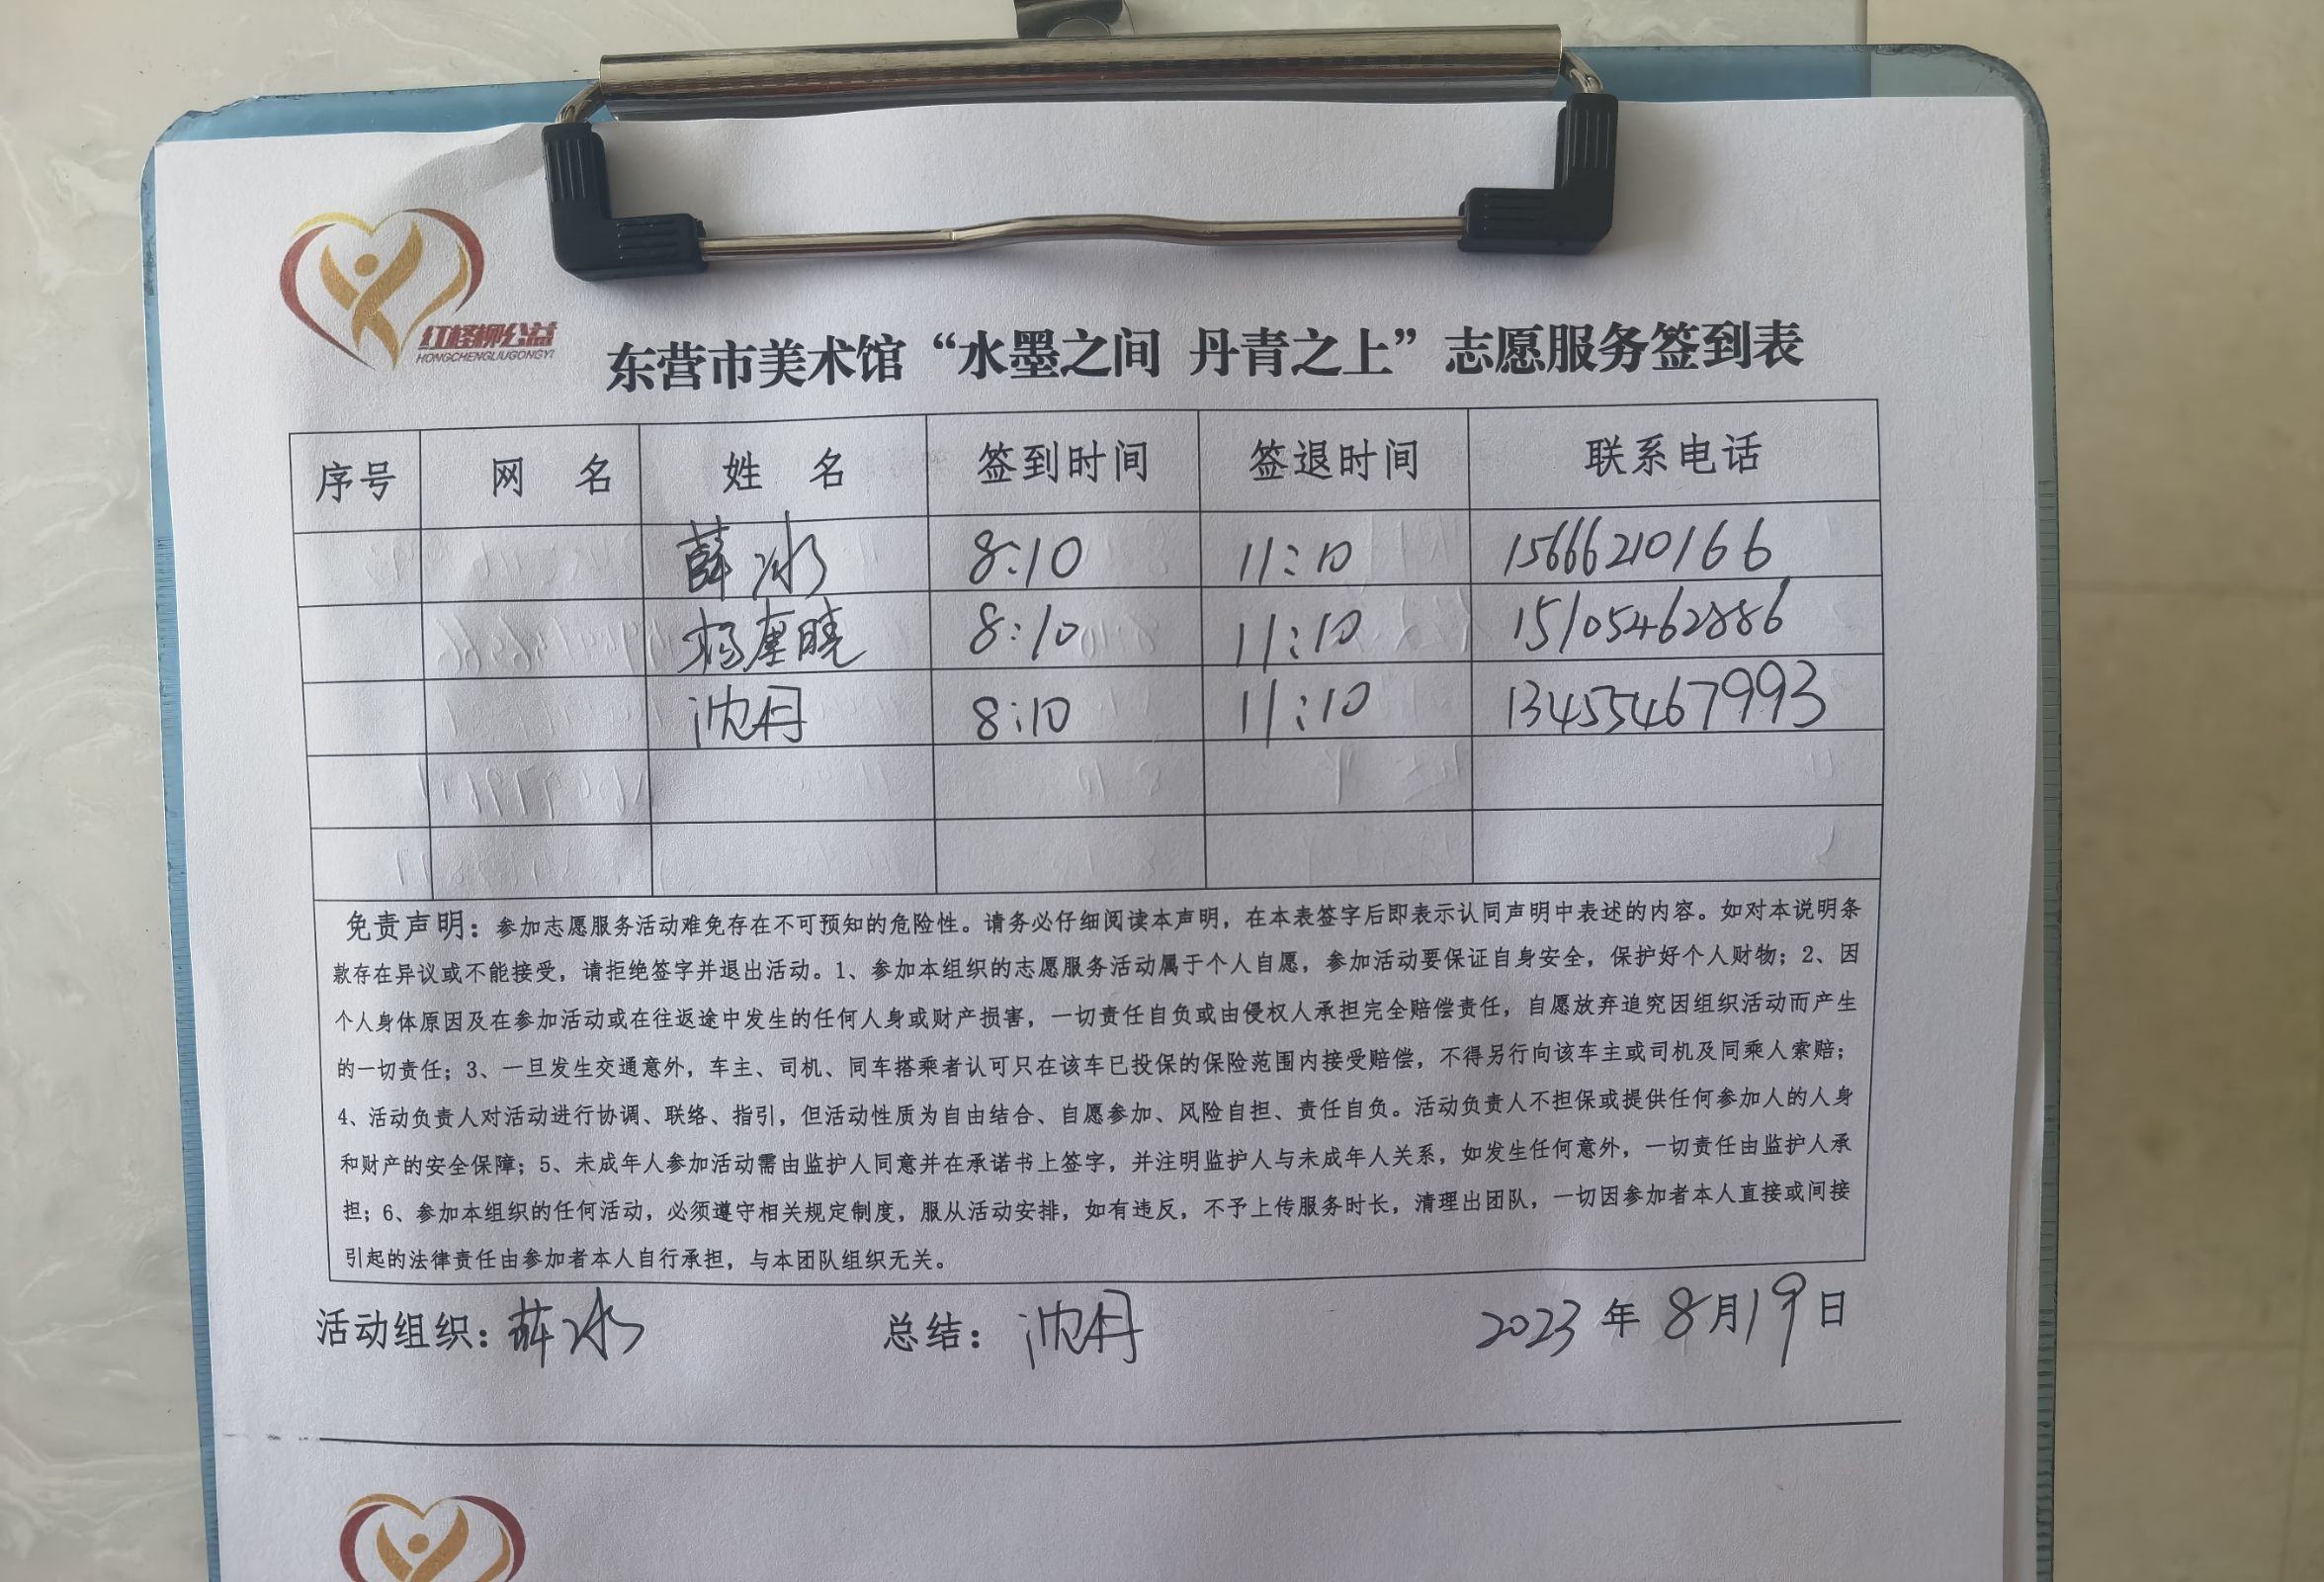 红柽柳公益
HONGCHENGLIUGONGYI
东营市美术馆“水墨之间 丹青之上”志愿服务签到表
序号 网 名 姓 名 签到时间 签退时间 联系电话
薛冰 8:10 11:10 15666210166
杨 晓 8:10 11:10 15105462886
沈丹 8:10 11:10 13455467993
免责声明：参加志愿服务活动难免存在不可预知的危险性。请务必仔细阅读本声明，在本表签字后即表示认同声明中表述的内容。如对本说明条
款存在异议或不能接受，请拒绝签字并退出活动。1、参加本组织的志愿服务活动属于个人自愿，参加活动要保证自身安全，保护好个人财物；2、因
个人身体原因及在参加活动或在往返途中发生的任何人身或财产损害，一切责任自负或由侵权人承担完全赔偿责任，自愿放弃追究因组织活动而产生
的一切责任；3、一旦发生交通意外，车主、司机、同车搭乘者认可只在该车已投保的保险范围内接受赔偿，不得另行向该车主或司机及同乘人索赔；
4、活动负责人对活动进行协调、联络、指引，但活动性质为自由结合、自愿参加、风险自担、责任自负。活动负责人不担保或提供任何参加人的人身
和财产的安全保障；5、未成年人参加活动需由监护人同意并在承诺书上签字，并注明监护人与未成年人关系，如发生任何意外，一切责任由监护人承
担；6、参加本组织的任何活动，必须遵守相关规定制度，服从活动安排，如有违反，不予上传服务时长，清理出团队，一切因参加者本人直接或间接
引起的法律责任由参加者本人自行承担，与本团队组织无关。
活动组织：薛冰 总结：沈丹 2023年8月19日